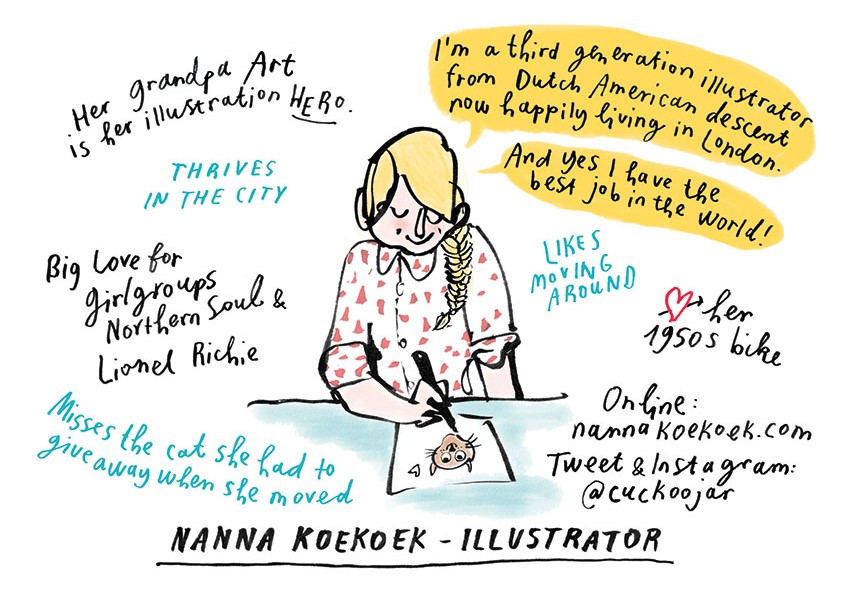 Her grandpa Art
is her illustration HERO.
I'm a third generation illustrator
from Dutch American descent
now happily living in London.
And yes I have the
best job in the world!
THRIVES
IN THE CITY
LIKES
MOVING
AROUND
Big Love for
girlgroups
Northern Soul &
Lionel Richie
her
1950s bike
Misses the cat she had to
give away when she moved
Online:
nannakoekoek.com
Tweet & Instagram:
@cuckoojar
NANNA KOEKOEK - ILLUSTRATOR